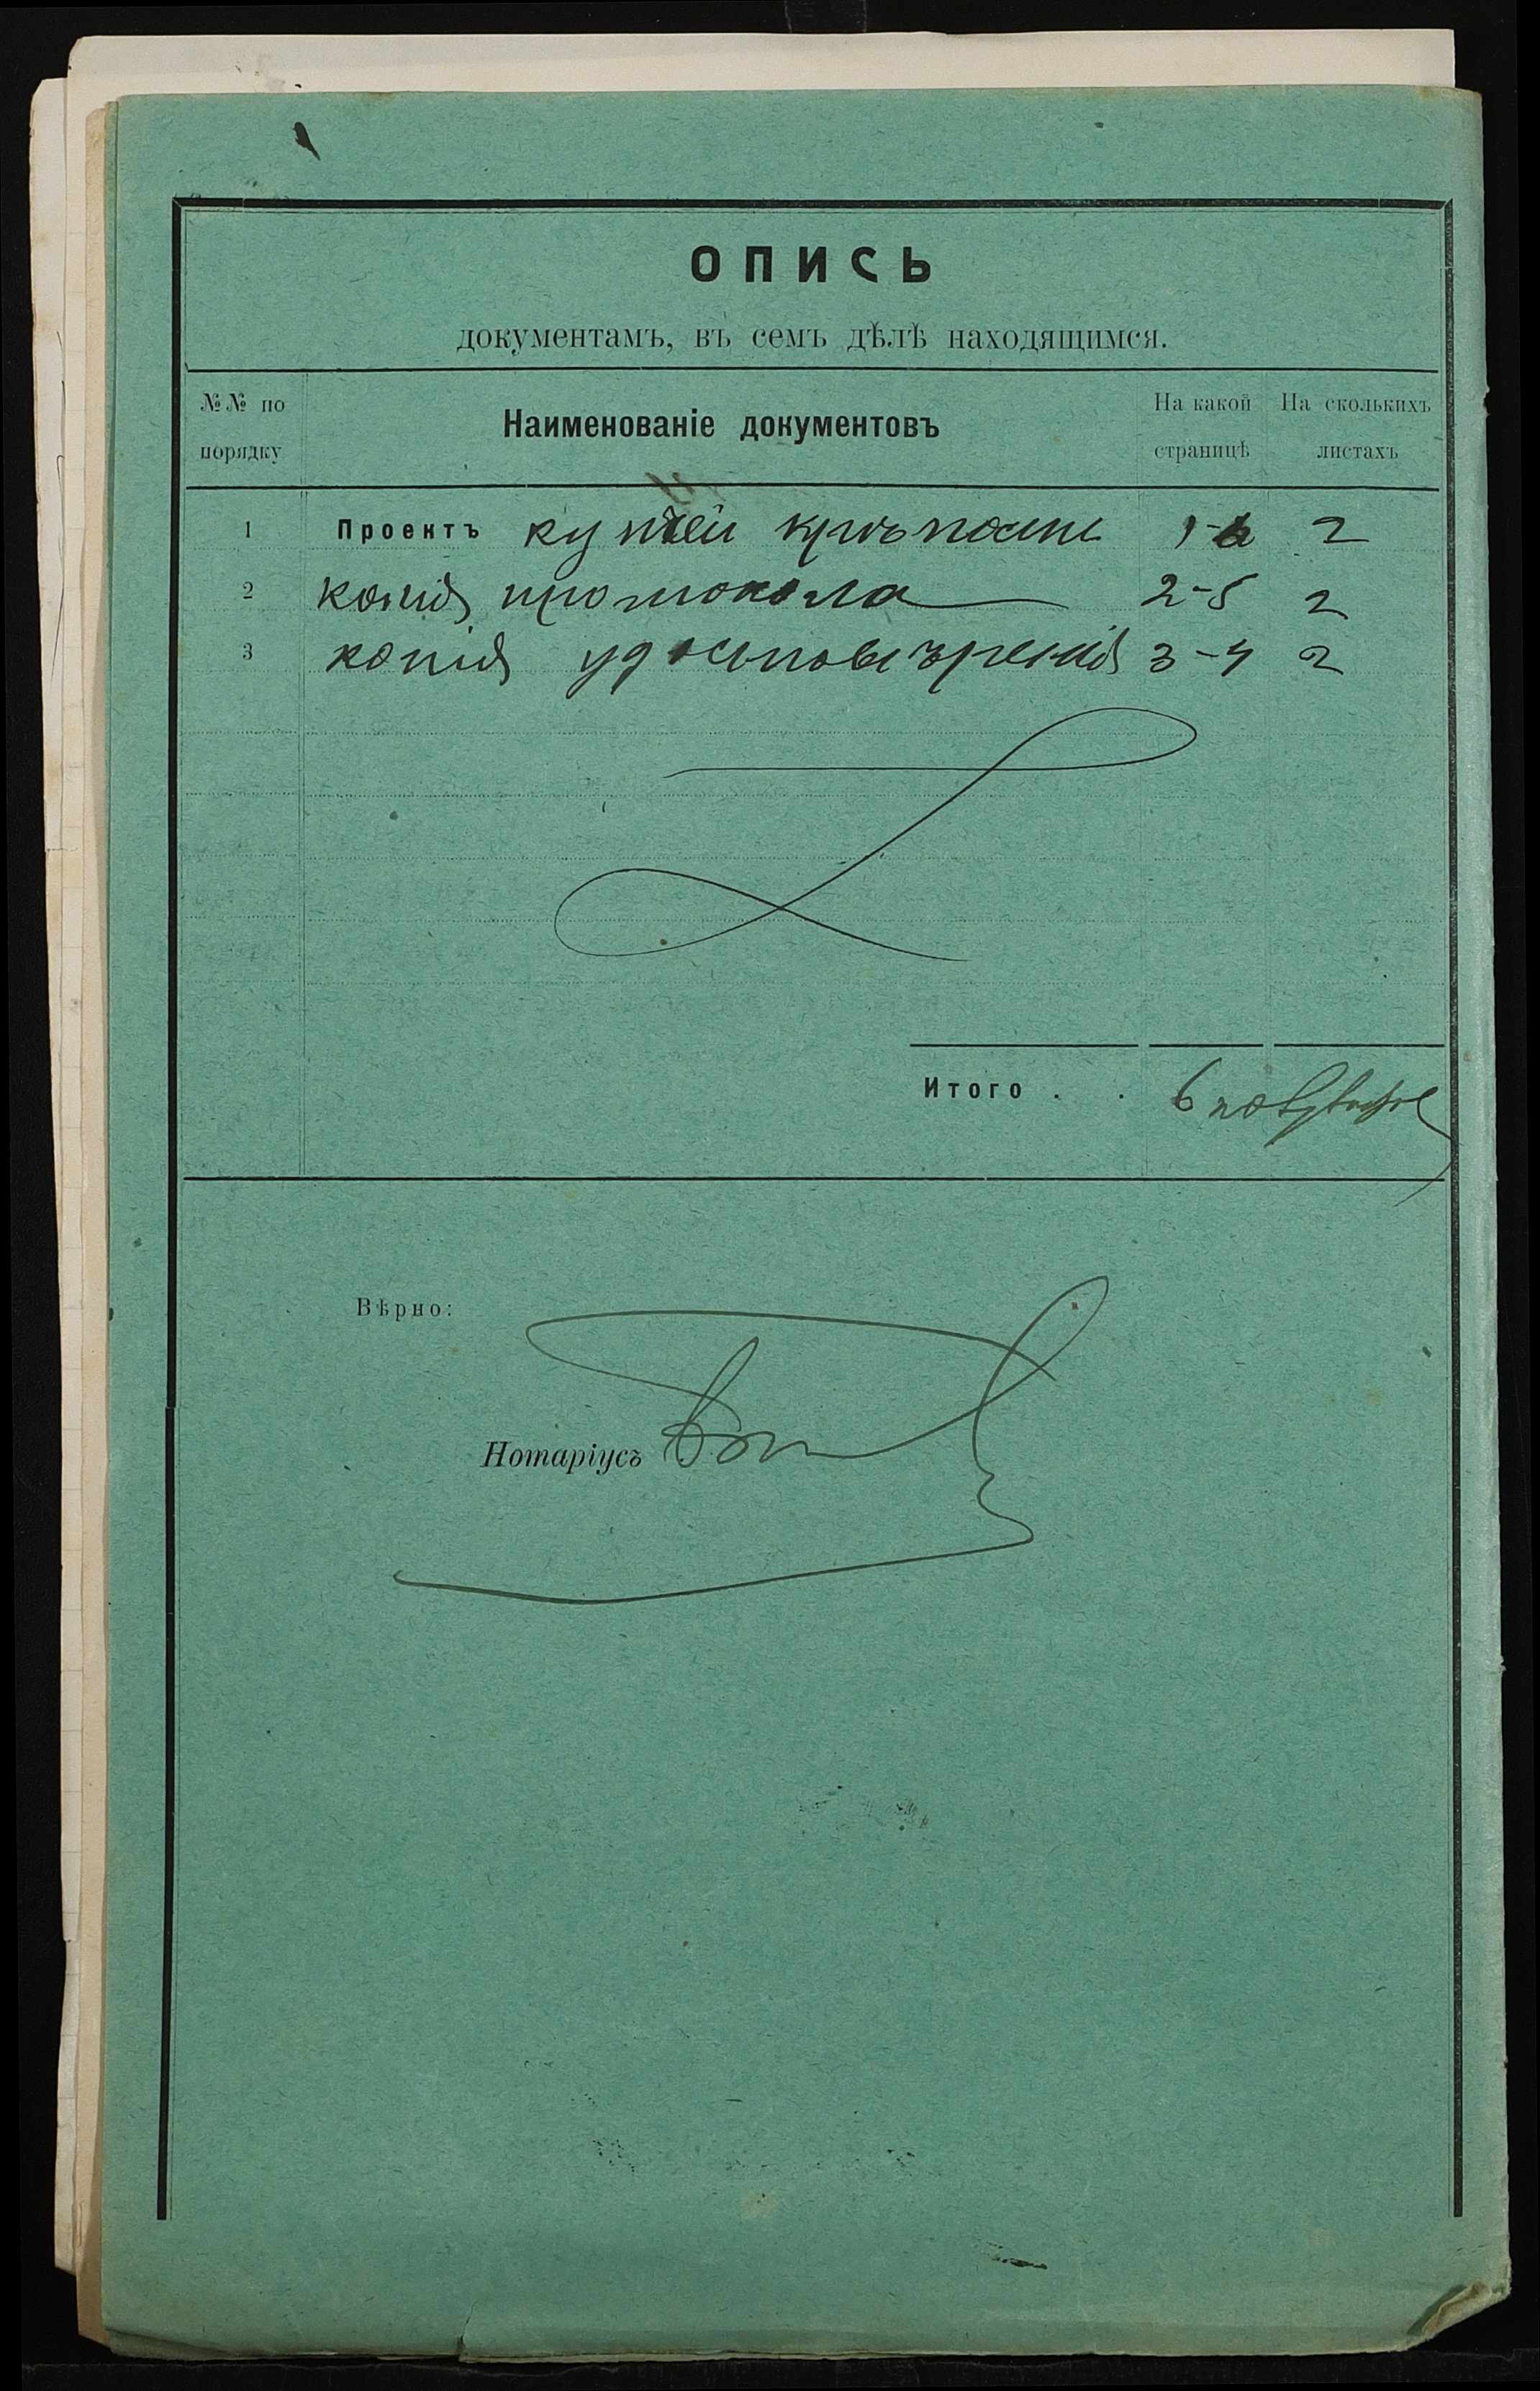 ОПИСЬ
документамъ, въ семъ дѣлѣ находящимся.
№№ по порядку
Наименованіе документовъ
На какой страницѣ
На сколькихъ листахъ
1 Проектъ купчей крѣпости 1-6 2
2 копія протокола 2-5 2
3 копія удостовѣренія 3-4 2
Итого . . 6
Вѣрно:
Нотаріусъ